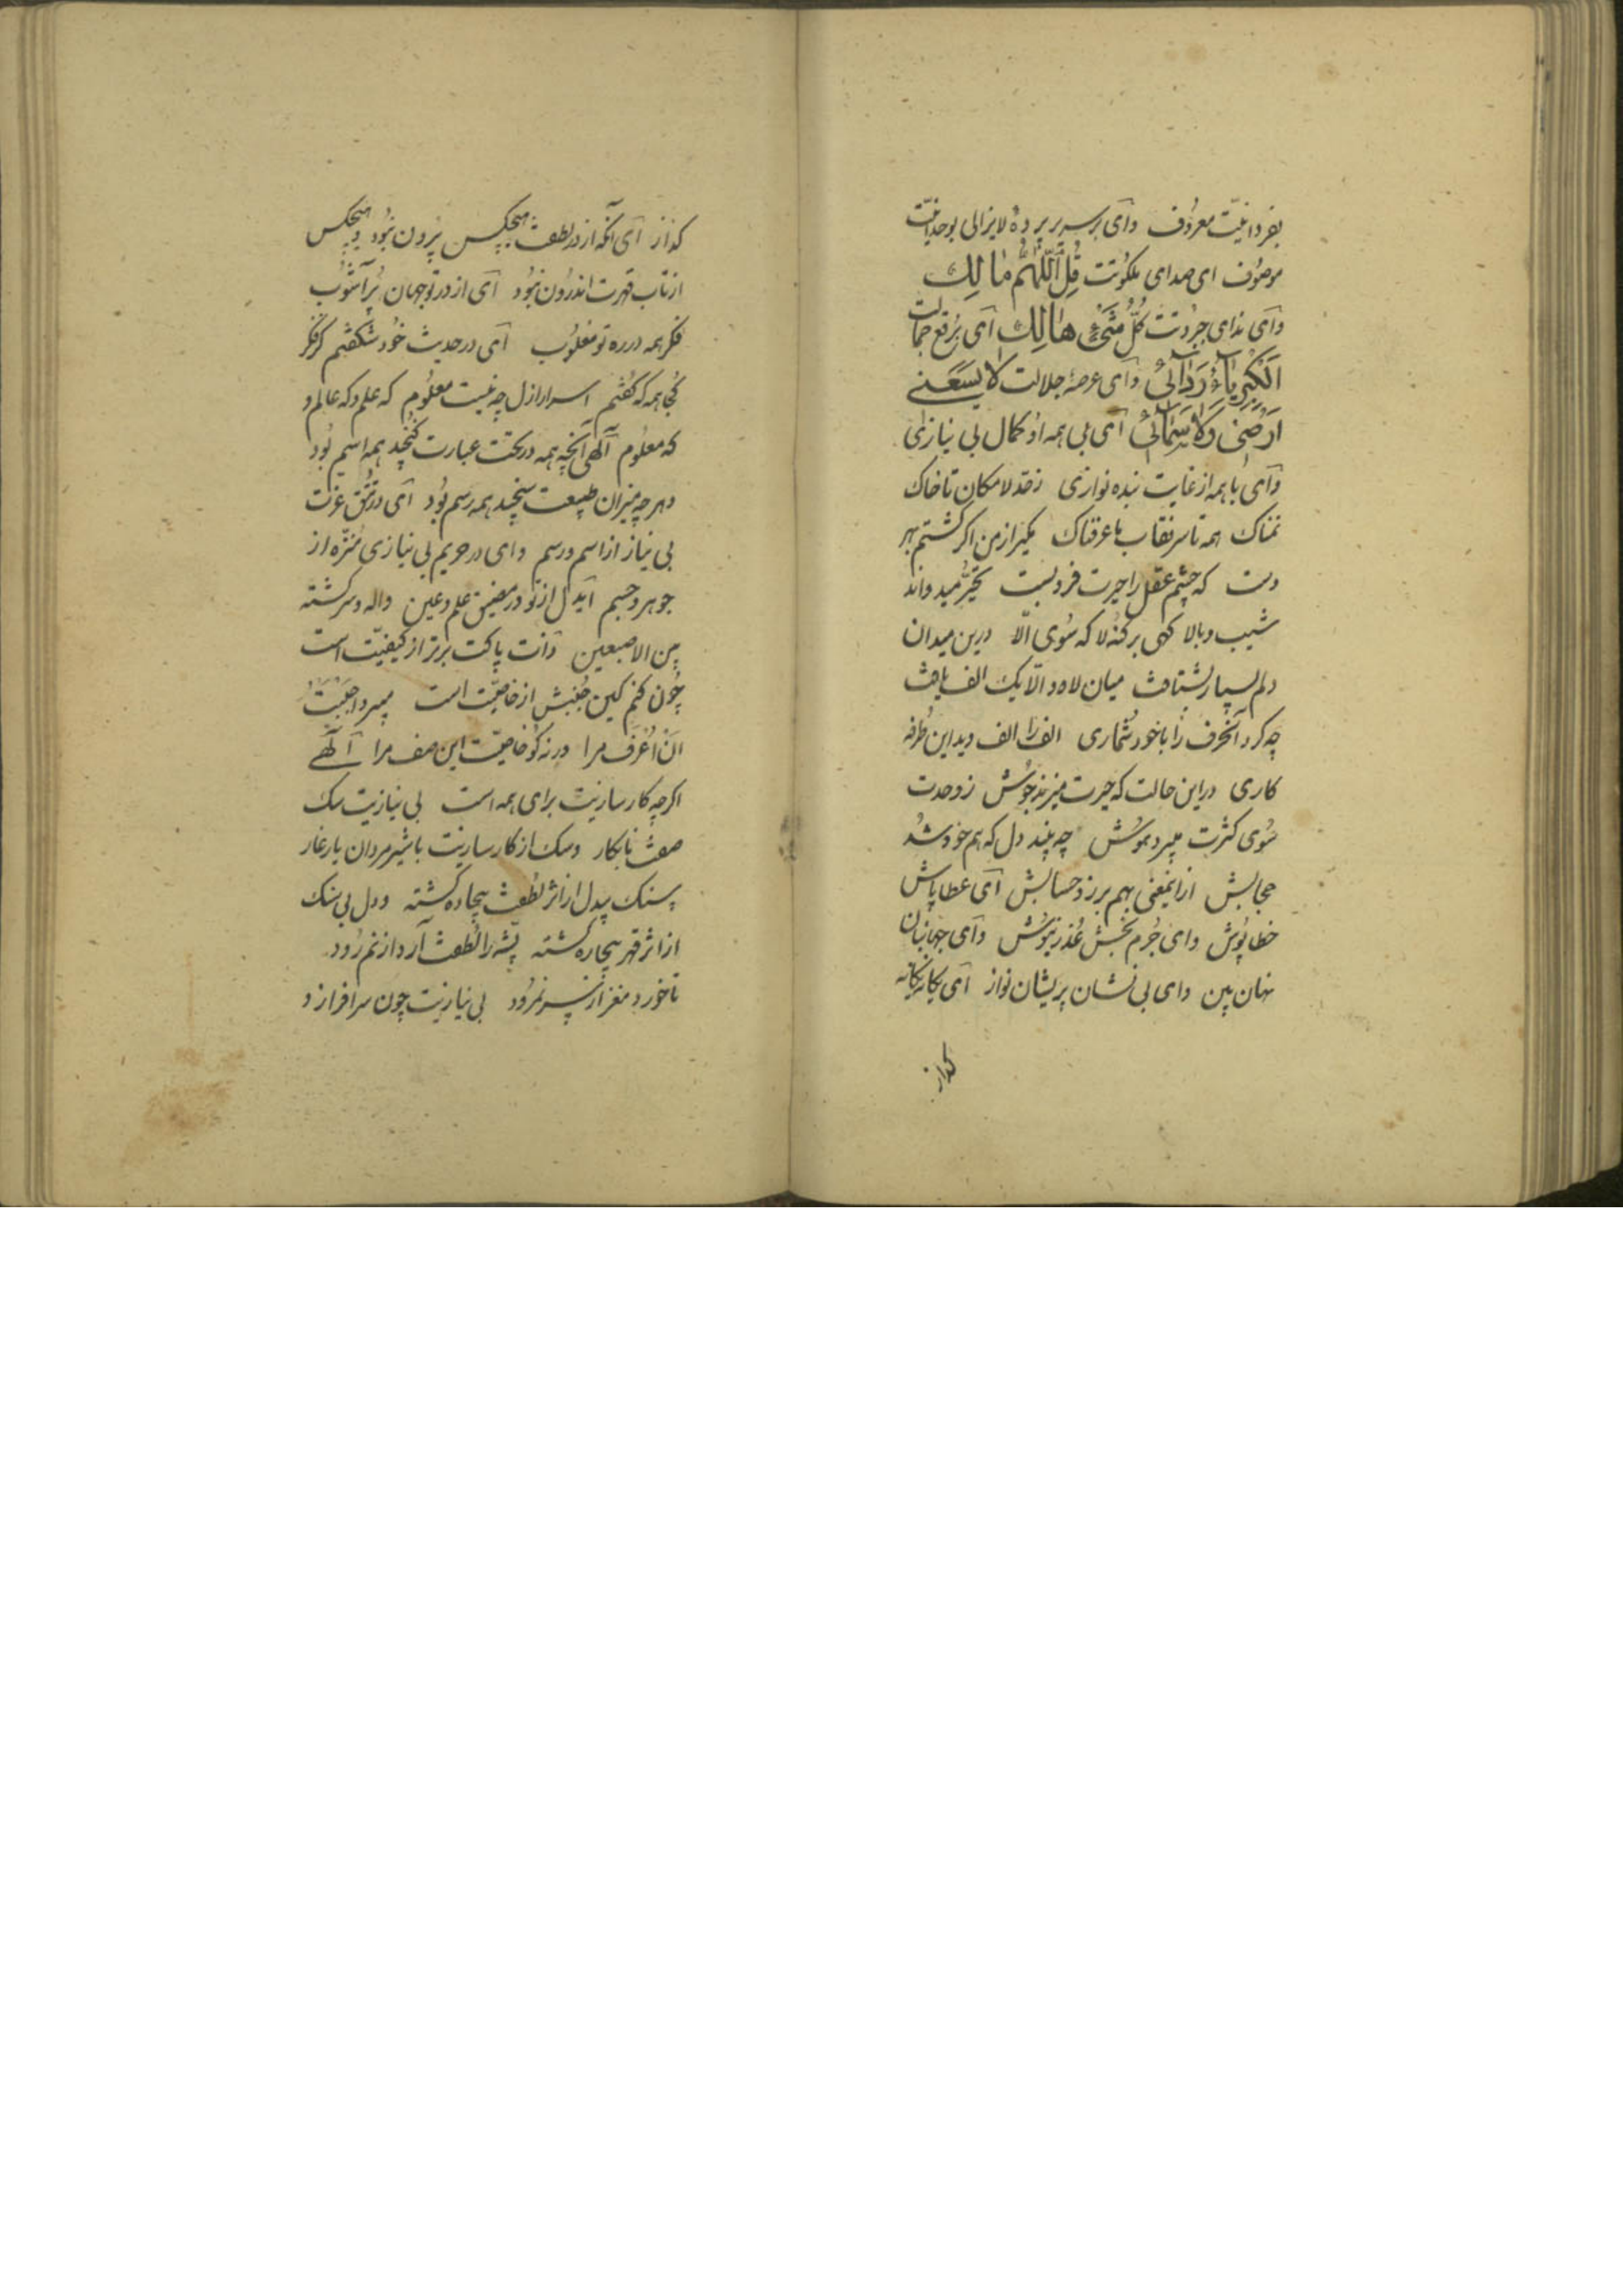 بفردانیّت معروف وای بر سریر پردهٔ لایزالی بوحدانیّت
موصوف ای صدای ملکوتت قُلِ اللّٰهُمَّ مٰالِكَ
وآی ندای جبروتت كُلُّ شَیْءٍ هٰالِكٌ آی برقع جمالت
اَلْكِبْرِیآءُ رِدآئی وآی عرصهٔ جلالت لا یَسَعُنی
اَرْضی وَلا سَمائی آی بی همه از کمال بی نیازی
وآی با همه از غایت بنده نوازی زقد لامکان تا خاک
نمناک همه تاسر نقاب ما عرفناک مگیر از من اگر گشتم بهر
دست که چشم عقل را حیرت فروبست تحیّر میدواند
شیب وبالا گهی بر کنه لا که سوی الّا درین میدان
دلم بسیار بشتافت میان لا و الّا یک الف یافت
چه کرد آنحرف را باخود شماری الف را الف دید این طُرفه
کاری در این حالت که حیرت میزند جوش ز وحدت
سُوی کثرت میبرد هوش چه بیند دل که هم خود شد
حجابش ازاینمعنی بهم برزد حسابش آی عطا پاش
خطا پُوش وای جُرم بخش عُذر نیوش وآی جهانبان
نهان بین وای بی نشان پریشان نواز آی یگانه بیگانه
گداز
گداز آی آنکه از در لطفت هیچکس بیرون نبُود وهیچکس
از تاب قهرت اندرون نبُود آی از در تو جهان پُرآشُوب
فکر همه در ره تو مغلُوب آی در حدیث خُود شگفتم کز فکر
کجا همه که گفتم اسرار ازل چه نیست معلُوم که علم وکه عالم و
که معلُوم آلهی آنچه همه در تحت عبارت گنجد همه اسم بُود
وهرچه میزان طبیعت سنجد همه رسم بُود آی در تتق عزت
بی نیاز از اسم ورسم وای در حریم بی نیازی منزّه از
جوهر وجسم آیدل از تو در مضیق علم وعین واله وسرگشته
بین الاصبعین ذات پاکت برتر از کیفیّت است
چُون کنم کین جُنبش از خاصیّت است میبرد اَحْبَبْتُ
اَنْ اُعْرَفْ مرا ورنه کو خاصیّت این صف مرا آلٓهی
اگرچه کارسازیت برای همه است بی نیازیت سگ
صفت نابکار وسگ از کارسازیت با شیر مردان یار غار
سنگ بیدل از اثر لطفت بیجاده گشته ودل بی سنگ
از اثر قهر بیچاره گشته پشّه را لُطفت آرد از نم رُود
تا خورد مغز از سر نمرُود بی نیازیت چون سرافرازد